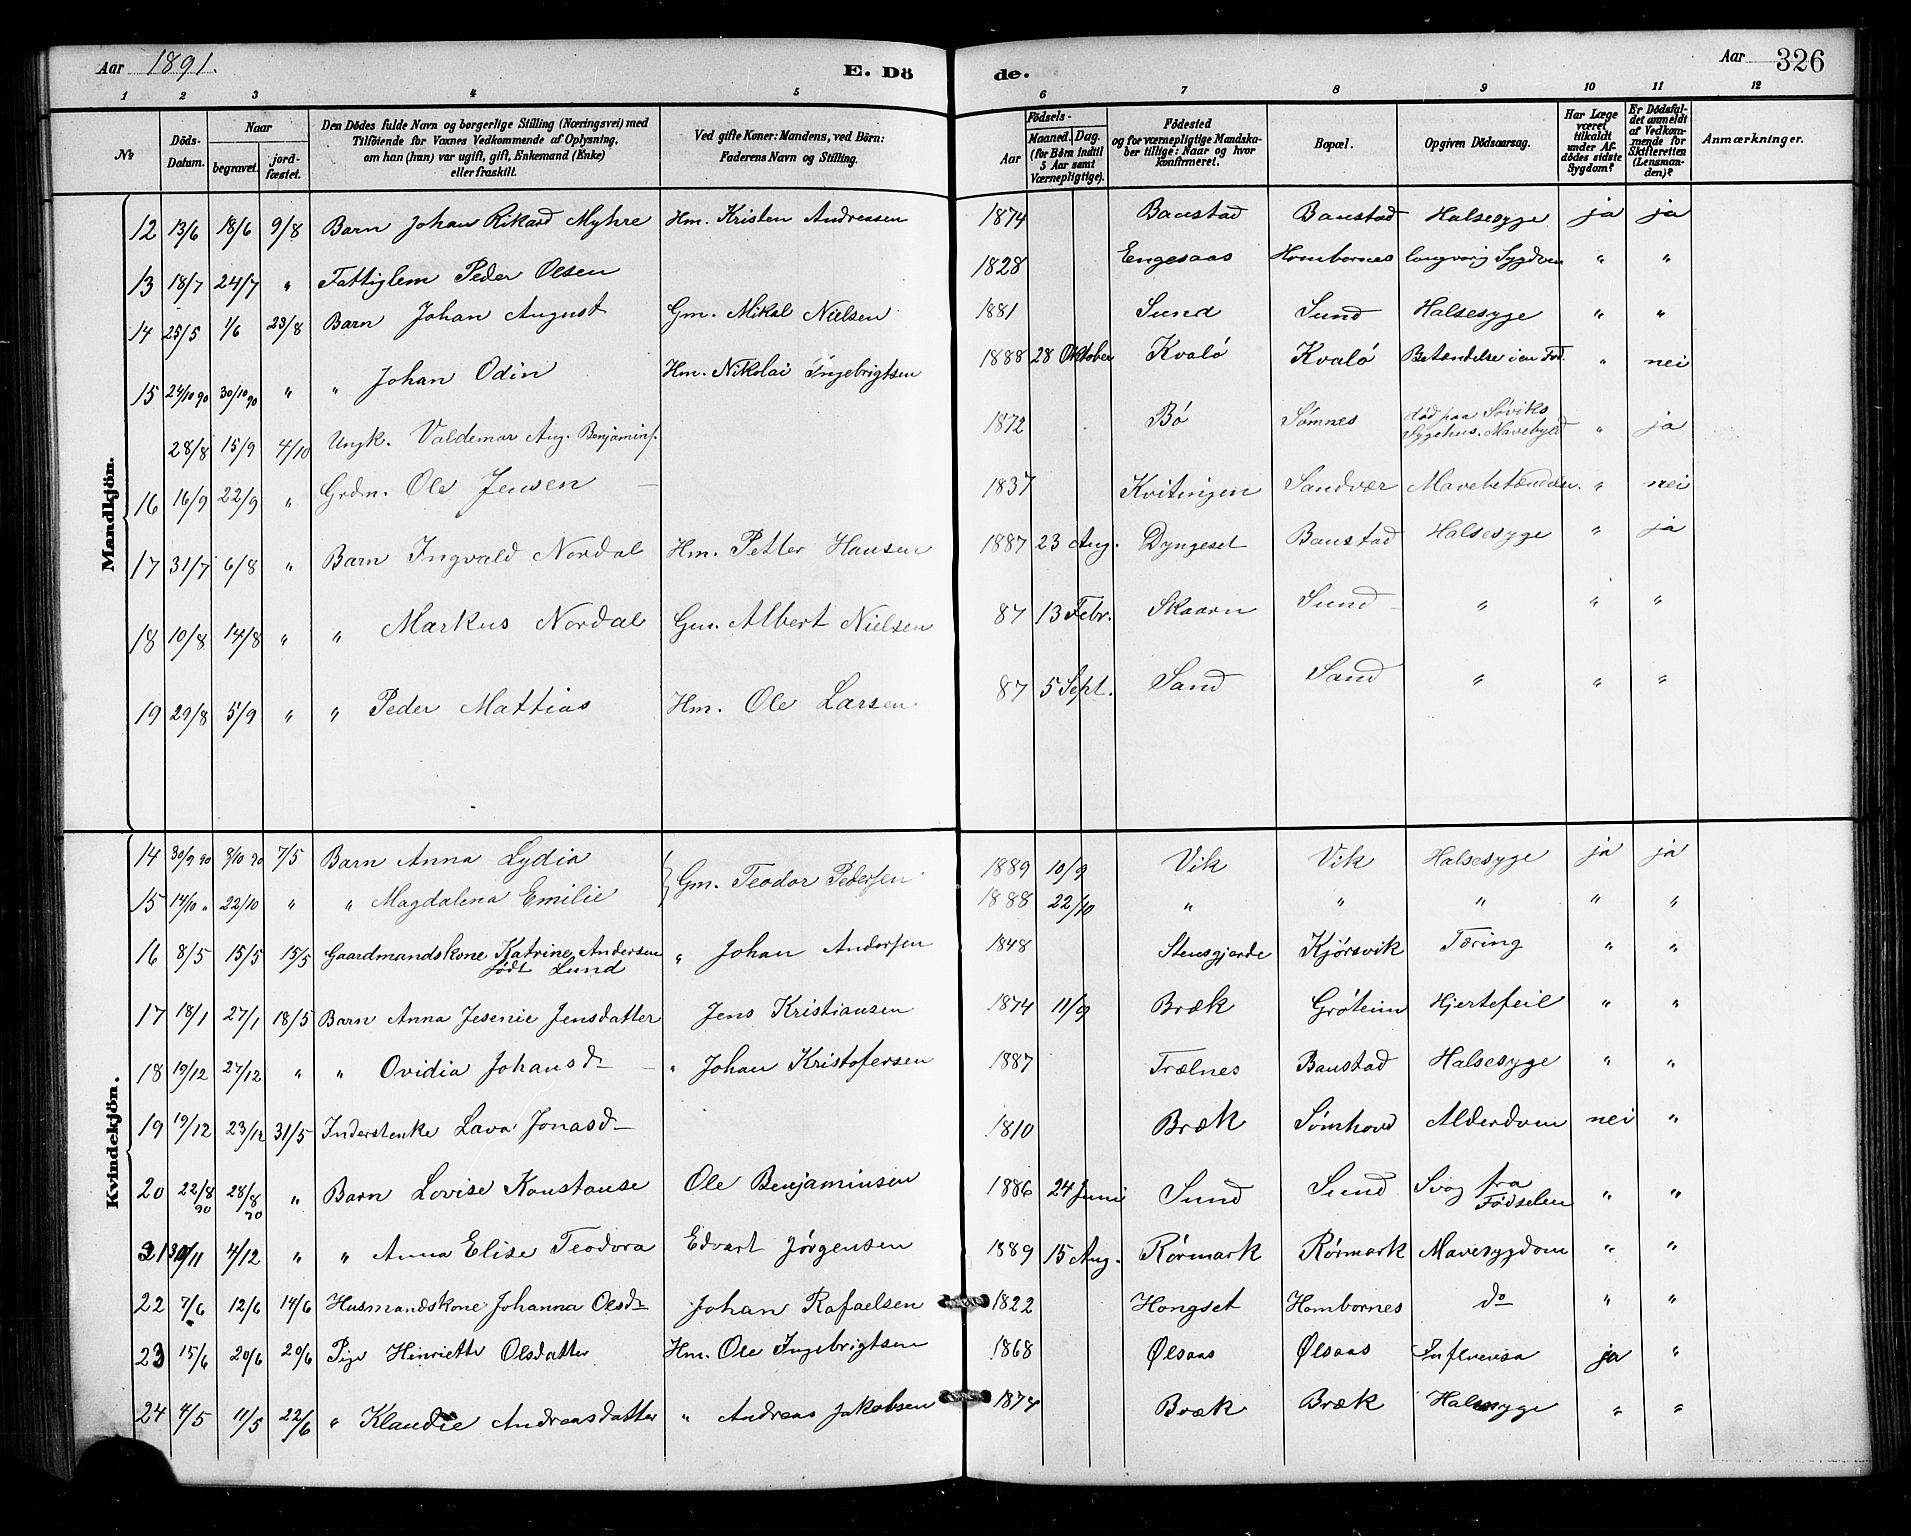 Aar 1891.
E. Dö
de.
Aar 326
1 2 3 4 5 6 7 8 9 10 11 12
No
Döds-Datum.
Naar
begravet.
jord-fæstet.
Den Dödes fulde Navn og borgerlige Stilling (Næringsvei) med
Tilföiende for Voxnes Vedkommende af Oplysning,
om han (hun) var ugift, gift, Enkemand (Enke)
eller fraskilt.
Ved gifte Koner: Mandens, ved Börn:
Faderens Navn og Stilling.
Födsels-
Aar
Maaned. Dag.
(for Börn indtil
5 Aar samt
Værnepligtige).
Födested
og for værnepligtige Mandska-
ber tillige: Naar og hvor
konfirmeret.
Bopæl.
Opgiven Dödsaarsag.
Har Læge
været
tilkaldt
under Af-
dödes sidste
Sygdom?
Er Dödsfal-
det anmeldt
af Vedkom-
mende for
Skifteretten
(Lensman-
den)?
Anmærkninger.
Mandkjön.
12 13/6 18/6 9/8 Barn Johan Rikard Myhre Hm. Kristen Andreasen 1874 Baustad Baustad Halsesyge ja ja
13 18/7 24/7 " Fattiglem Peder Olsen 1828 Engesaas Hombornes langvarig Sygdom " "
14 25/5 1/6 23/8 Barn Johan August Gm. Mikal Nielsen 1881 Sund Sund Halsesyge " "
15 24/10 90 30/10 90 " " Johan Odin Hm. Nikolai Ingebrigtsen 1888 28 Oktober Kvalø Kvalø Betændelse i en Fod. " nei
28/8 15/9 4/10 Ungk. Valdemar Aug. Benjamins. 1872 Bø Sømnes død paa Søviks
Sygehus. Mavebyld " ja
16 16/9 22/9 " Grdm. Ole Jensen 1837 Kvitingen Sandvær " nei
17 31/7 6/8 " Barn Ingvald Nordal Hm. Petter Hansen 1887 23 Aug. Dyngeset Baustad Halsesyge " ja
18 10/8 14/8 " " Markus Nordal Gm. Albert Nielsen 87 13 Febr. Skaarn Sund " " "
19 29/8 5/9 " " Peder Mattias Hm. Ole Larsen 87 5 Sept. Sand Sand " " "
Kvindekjön.
14 30/9 90 8/10 90 7/5 Barn Anna Lydia Gm. Teodor Pedersen 1889 10/9 Vik Vik Halsesyge ja ja
15 14/10 " 22/10 " " Magdalena Emilie 1888 22/10 " " " " "
16 8/5 15/5 15/5 Gaardmandskone Katrine Andersen
født Lund " Johan Andersen 1848 Stensgjerde Kjørsvik Tæring " "
17 18/1 27/1 18/5 Barn Anna Jesenie Jensdatter Jens Kristiansen 1874 11/9 Bræk Grøteim Hjertefeil " "
18 19/12 27/12 " " Ovidia Johansd " Johan Kristofersen 1887 Trælnes Baustad Halsesyge " "
19 19/12 23/12 31/5 Inderstenke Lava Jonasd 1810 Bræk Sømhovd Alderdom nei "
20 22/8 90 28/8 90 " Barn Lovise Konstanse Ole Benjaminsen 1886 24 Juni Sund Sund Svag fra
Fødselen " "
21 30/11 4/12 " " Anna Elise Teodora Edvart Jørgensen 1889 15 Aug. Rørmark Rørmark Mavesygdom " "
22 7/6 12/6 14/6 Husmandskone Johanna Olsd Johan Rafaelsen 1822 Hongset Hombornes do " "
23 15/6 20/6 20/6 Pige Henriette Olsdatter Hm. Ole Ingebrigtsen 1868 Ølsaas Ølsaas Influensa ja "
24 4/5 11/5 22/6 " Klaudie Andreasdatter " Andreas Jakobsen 1874 Bræk Bræk Halsesyge " "